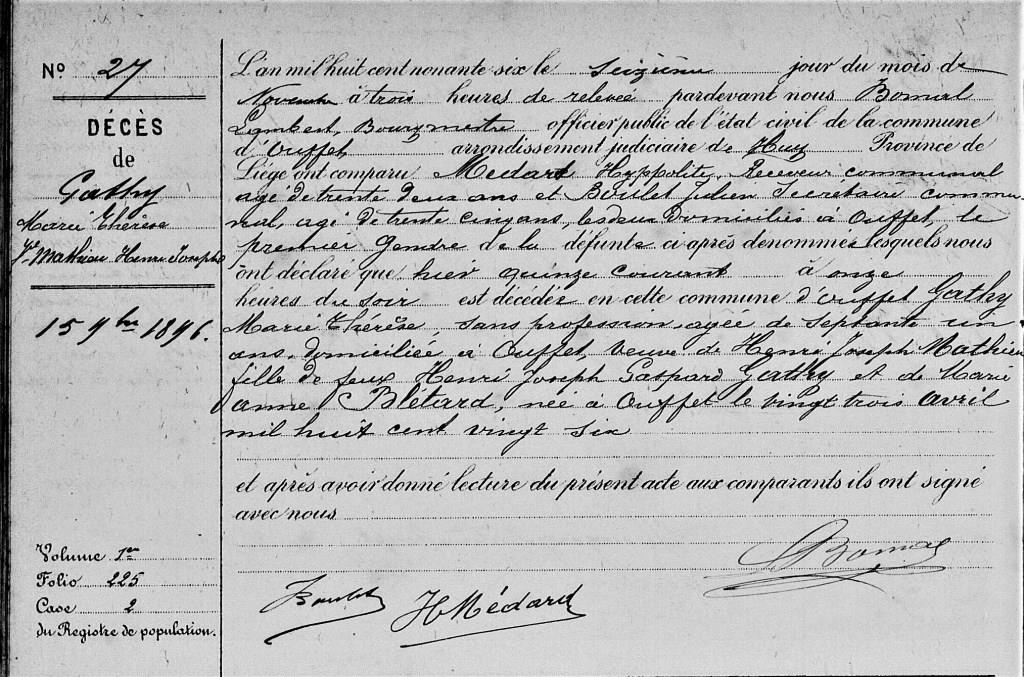 No 27
DÉCÈS
de
Gathy
Marie Thérèse
Ve Mathieu Henri Joseph
15 9bre 1896.
Volume 1er
Folio 225
Case 2
du Registre de population.
L'an mil huit cent nonante six le seizième jour du mois de
Novembre à trois heures de relevée pardevant nous Bomal
Lambert, Bourgmestre officier public de l'état civil de la commune
d'Ouffet arrondissement judiciaire de Huy Province de
Liége ont comparu Médard Hyppolite, Receveur communal
agé de trente deux ans et Boulet Julien Secretaire commu-
nal, agé de trente cinq ans, les deux domiciliés à Ouffet, le
premier gendre de la défunte ci après denommée lesquels nous
ont déclaré que hier quinze courant à onze
heures du soir est décédée en cette commune d'Ouffet Gathy
Marie Thérèse, sans profession, agée de septante un
ans, domiciliée à Ouffet, veuve de Henri Joseph Mathieu
fille de feux Henri Joseph Gaspard Gathy et de Marie
anne Blétard, née à Ouffet le vingt trois avril
mil huit cent vingt six
et après avoir donné lecture du présent acte aux comparants ils ont signé
avec nous
LBomal
Boulet
H Médard